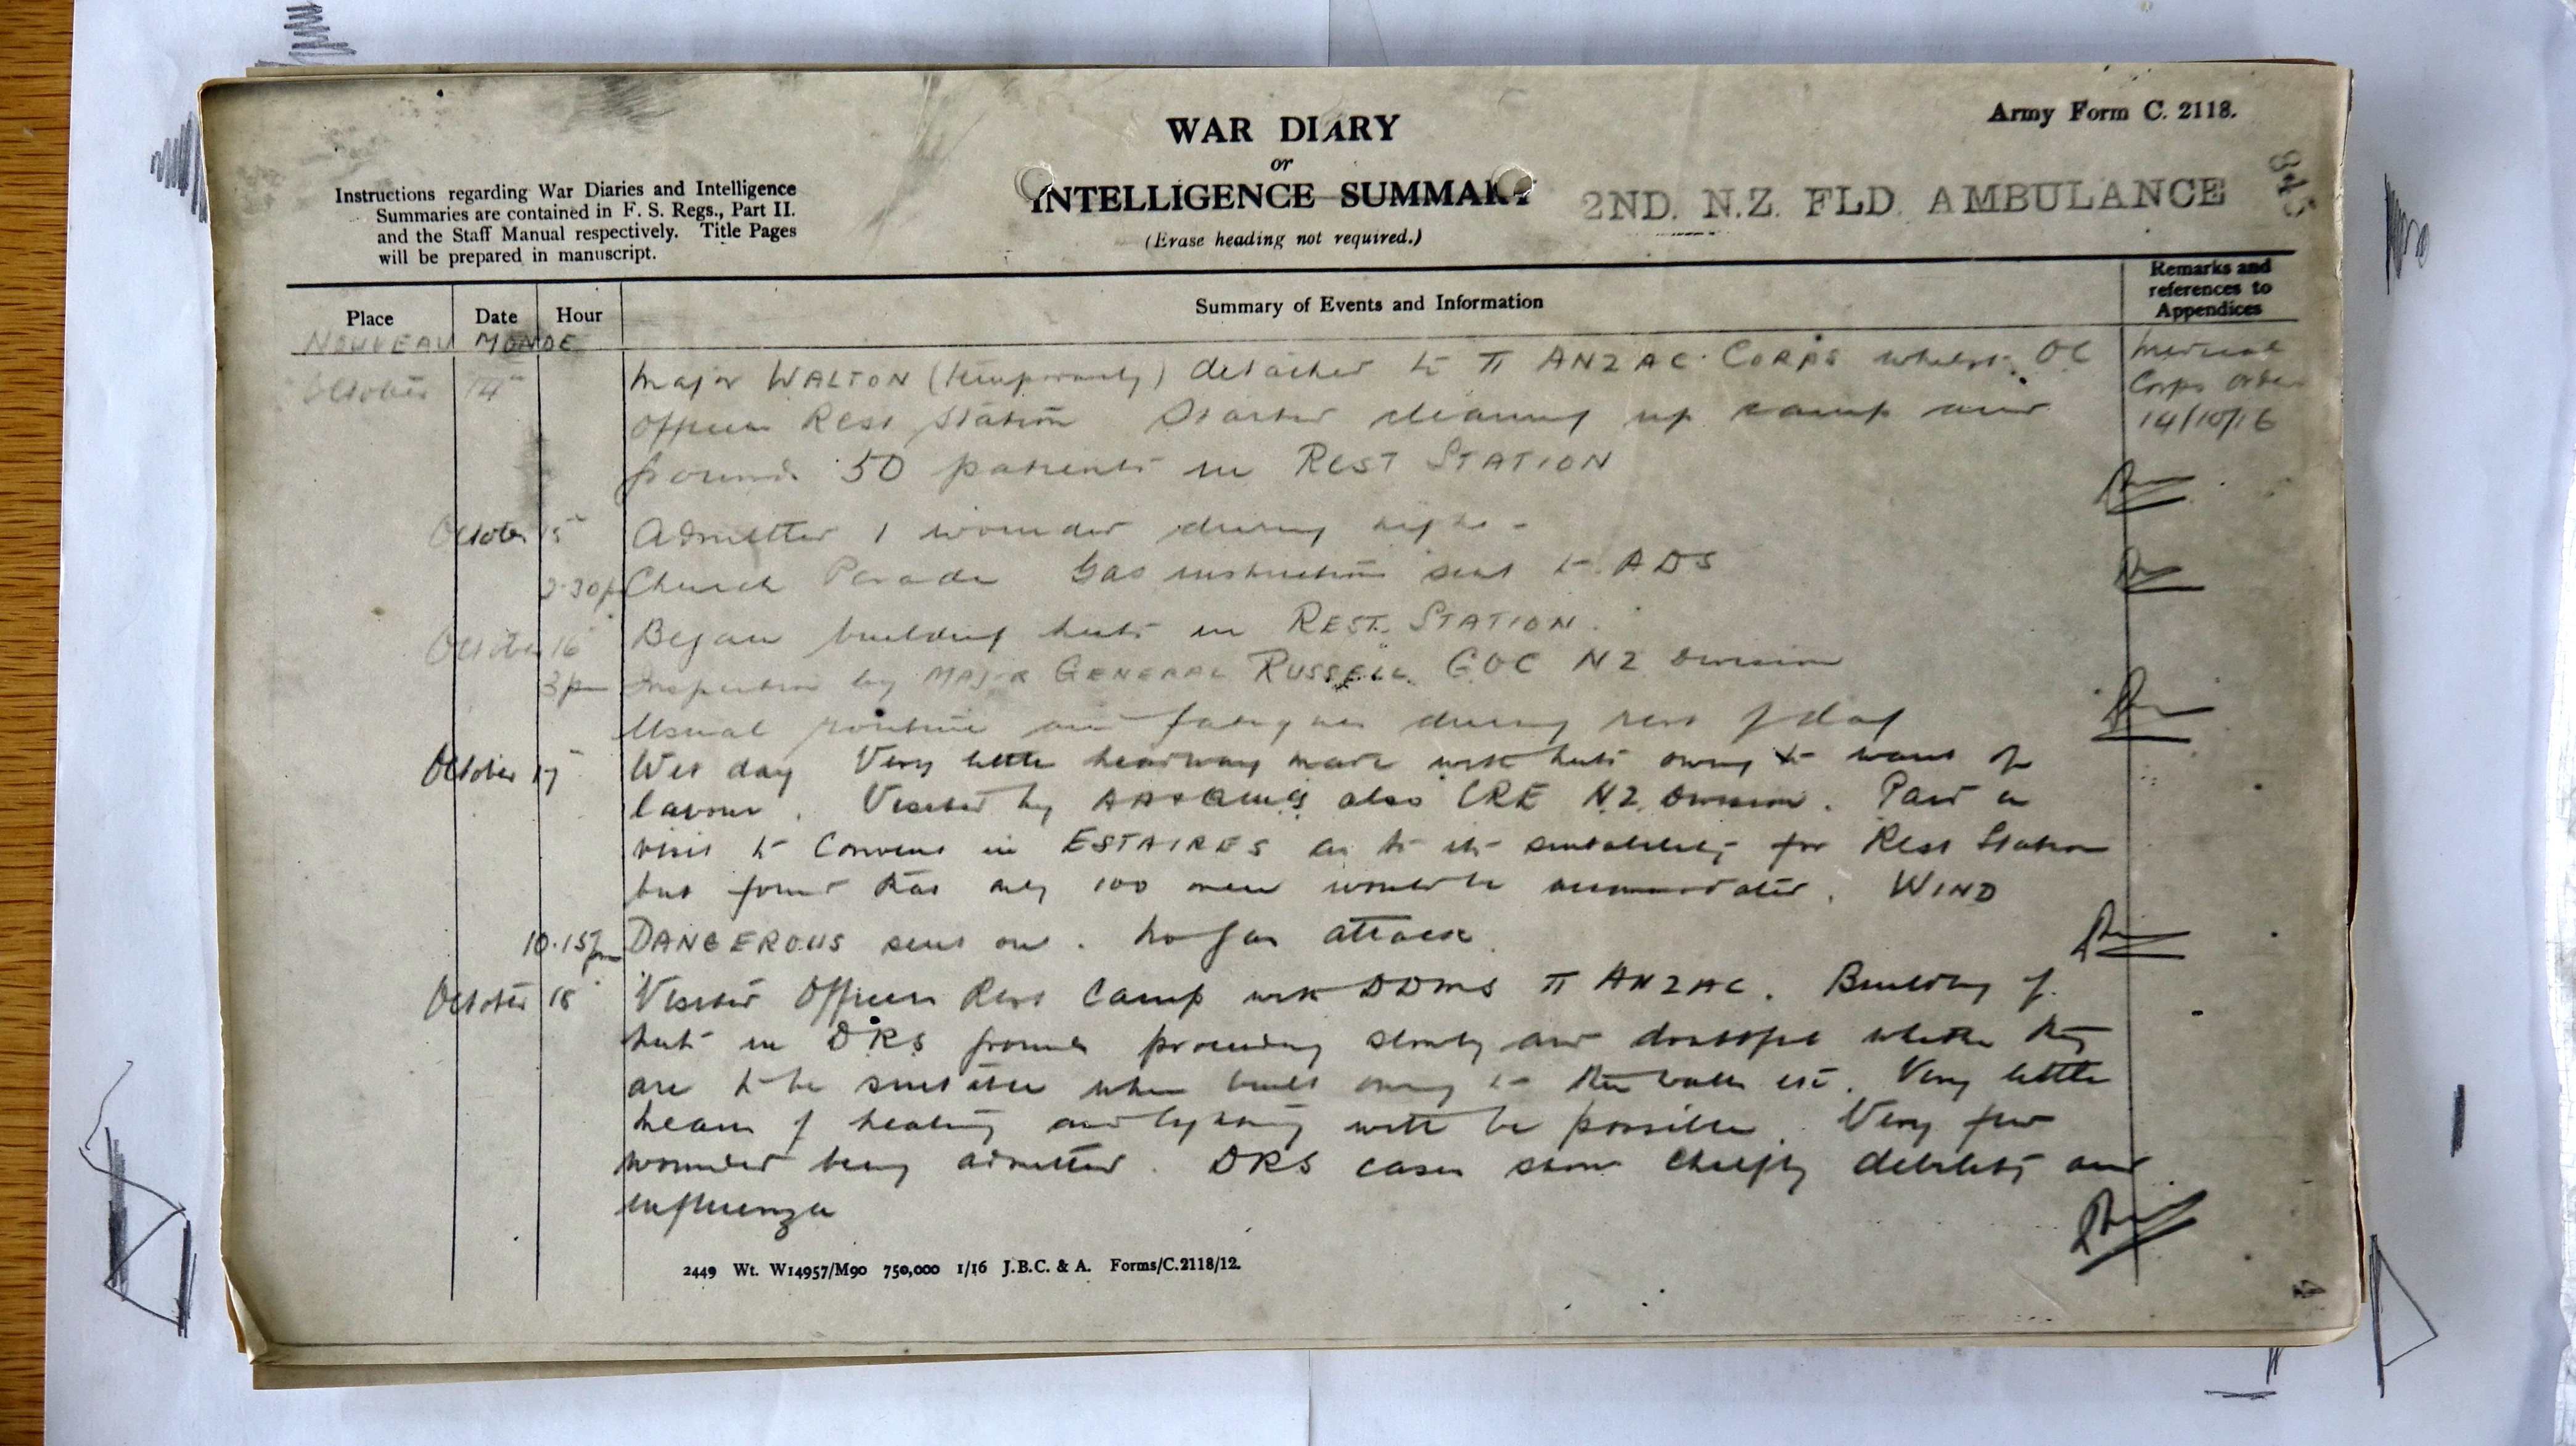 Army Form C. 2118.
WAR DIARY
or
INTELLIGENCE SUMMARY
(Erase heading not required.)
2ND. N.Z. FLD. AMBULANCE
845
Instructions regarding War Diaries and Intelligence
Summaries are contained in F. S. Regs., Part II.
and the Staff Manual respectively. Title Pages
will be prepared in manuscript.
Place Date Hour Summary of Events and Information Remarks and
references to
Appendices
NOUVEAU MONDE
October 14 Major WALTON (temporarily) detached to II ANZAC CORPS whilst OC Medical
Corps Order
Officers Rest Station Started cleaning up camp and 14/10/16
found 50 patients in REST STATION
October 15 Admitted 1 wounded during night
2.30p Church Parade Gas instruction sent to ADS
October 16 Began building huts in REST STATION.
3pm Inspection by MAJOR GENERAL RUSSELL GOC NZ Division
Usual routine and fatigues during rest of day
October 17 Wet day Very little headway made with huts owing to want of
labour. Visited by also CRE NZ Division. Paid a
visit to Convent in ESTAIRES as to its suitability for Rest Station
but found that only 100 men would be accommodated. WIND
10.15pm DANGEROUS sent out. No gas attack
October 18 Visited Officers Rest Camp with DDMS II ANZAC. Building of
huts in DRS grounds proceeding slowly and doubtful whether they
are to be suitable when built owing to the etc. Very little
means of heating and lighting will be possible. Very few
wounded being admitted. DRS cases show chiefly debility and
influenza
2449 Wt. W14957/M90 750,000 1/16 J.B.C. & A. Forms/C.2118/12.
4